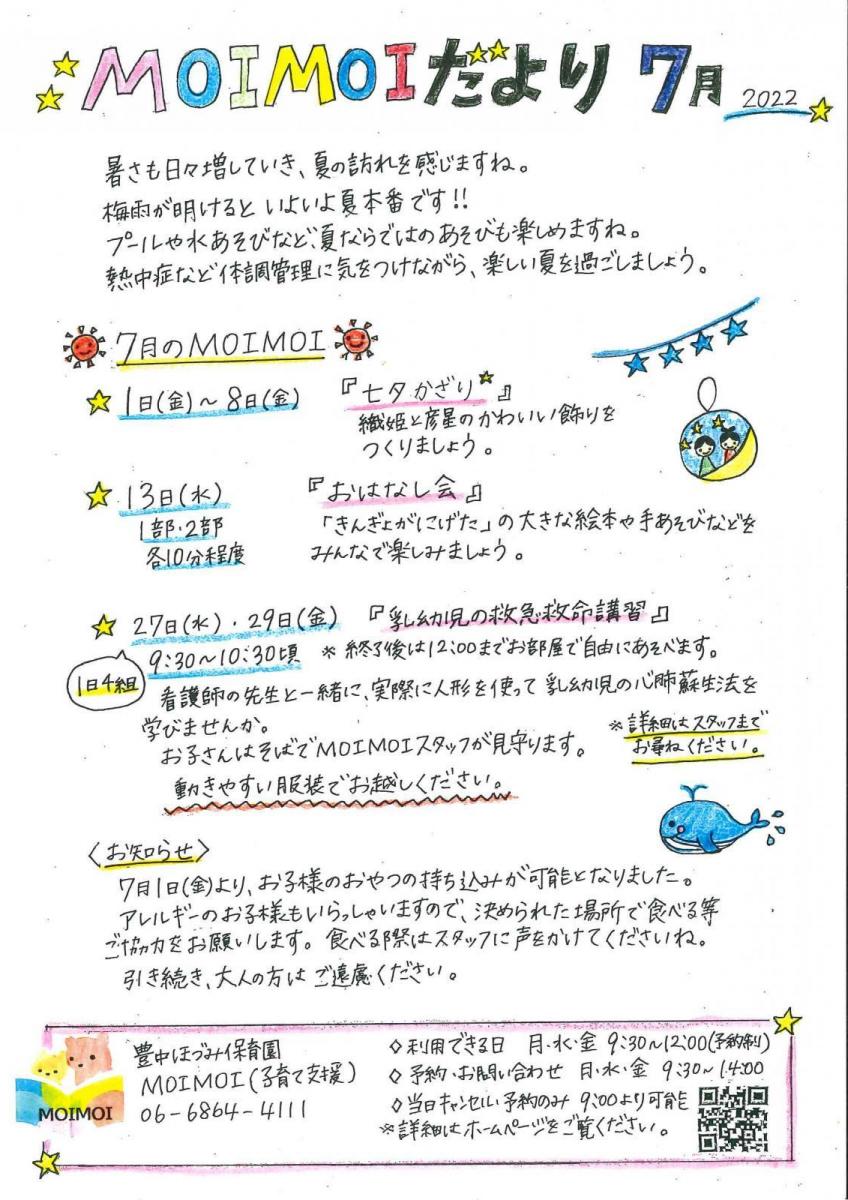 MOIMOIだより 7月 2022
暑さも日々増していき、夏の訪れを感じますね。
梅雨が明けると いよいよ夏本番です!!
プールや水あそびなど、夏ならではのあそびも楽しめますね。
熱中症など体調管理に気をつけながら、楽しい夏を過ごしましょう。
7月のMOIMOI
1日(金)～8日(金) 『七夕かざり』
織姫と彦星のかわいい飾りを
つくりましょう。
13日(水) 『おはなし会』
1部・2部 「きんぎょがにげた」の大きな絵本や手あそびなどを
各10分程度 みんなで楽しみましょう。
27日(水)・29日(金) 『乳幼児の救急救命講習』
9:30～10:30頃 ※終了後は12:00までお部屋で自由にあそべます。
1日4組
看護師の先生と一緒に、実際に人形を使って乳幼児の心肺蘇生法を
学びませんか。
お子さんはそばでMOIMOIスタッフが見守ります。
※詳細はスタッフまで
お尋ねください。
動きやすい服装でお越しください。
〈お知らせ〉
7月1日(金)より、お子様のおやつの持ち込みが可能となりました。
アレルギーのお子様もいらっしゃいますので、決められた場所で食べる等
ご協力をお願いします。食べる際はスタッフに声をかけてくださいね。
引き続き、大人の方はご遠慮ください。
MOIMOI
豊中ほづみ保育園
MOIMOI(子育て支援)
06-6864-4111
◇利用できる日 月・水・金 9:30～12:00(予約制)
◇予約・お問い合わせ 月・水・金 9:30～14:00
◇当日キャンセル・予約のみ 9:00より可能
※詳細はホームページをご覧ください。